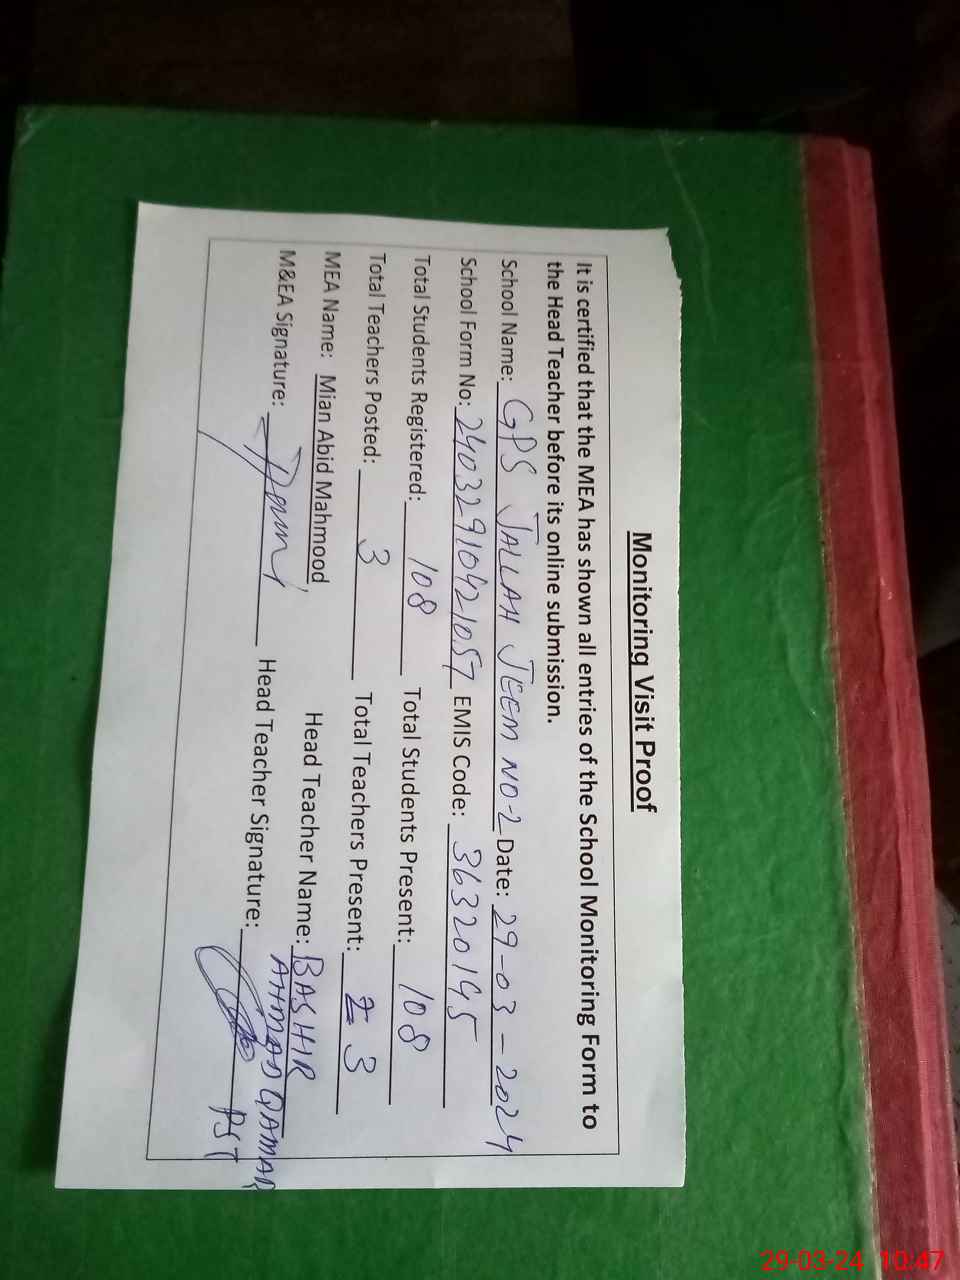 Monitoring Visit Proof
It is certified that the MEA has shown all entries of the School Monitoring Form to
the Head Teacher before its online submission.
School Name: GPS JALLAH JEEM NO-2 Date: 29-03-2024
School Form No: 24032910421057 EMIS Code: 36320195
Total Students Registered: 108 Total Students Present: 108
Total Teachers Posted: 3 Total Teachers Present: 2 3
MEA Name: Mian Abid Mahmood Head Teacher Name: BASHIR
AHMAD QAMAR
M&EA Signature: Head Teacher Signature:
PST
29-03-24 10:47